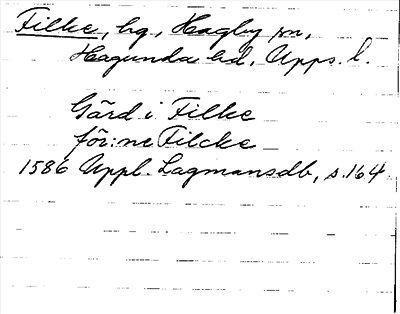 Filke, hg., Hagby sn,
Hagunda hd, Upps. l.
Gård i Filke
för:ne Filcke
1586 Uppl. Lagmansdb, s. 164